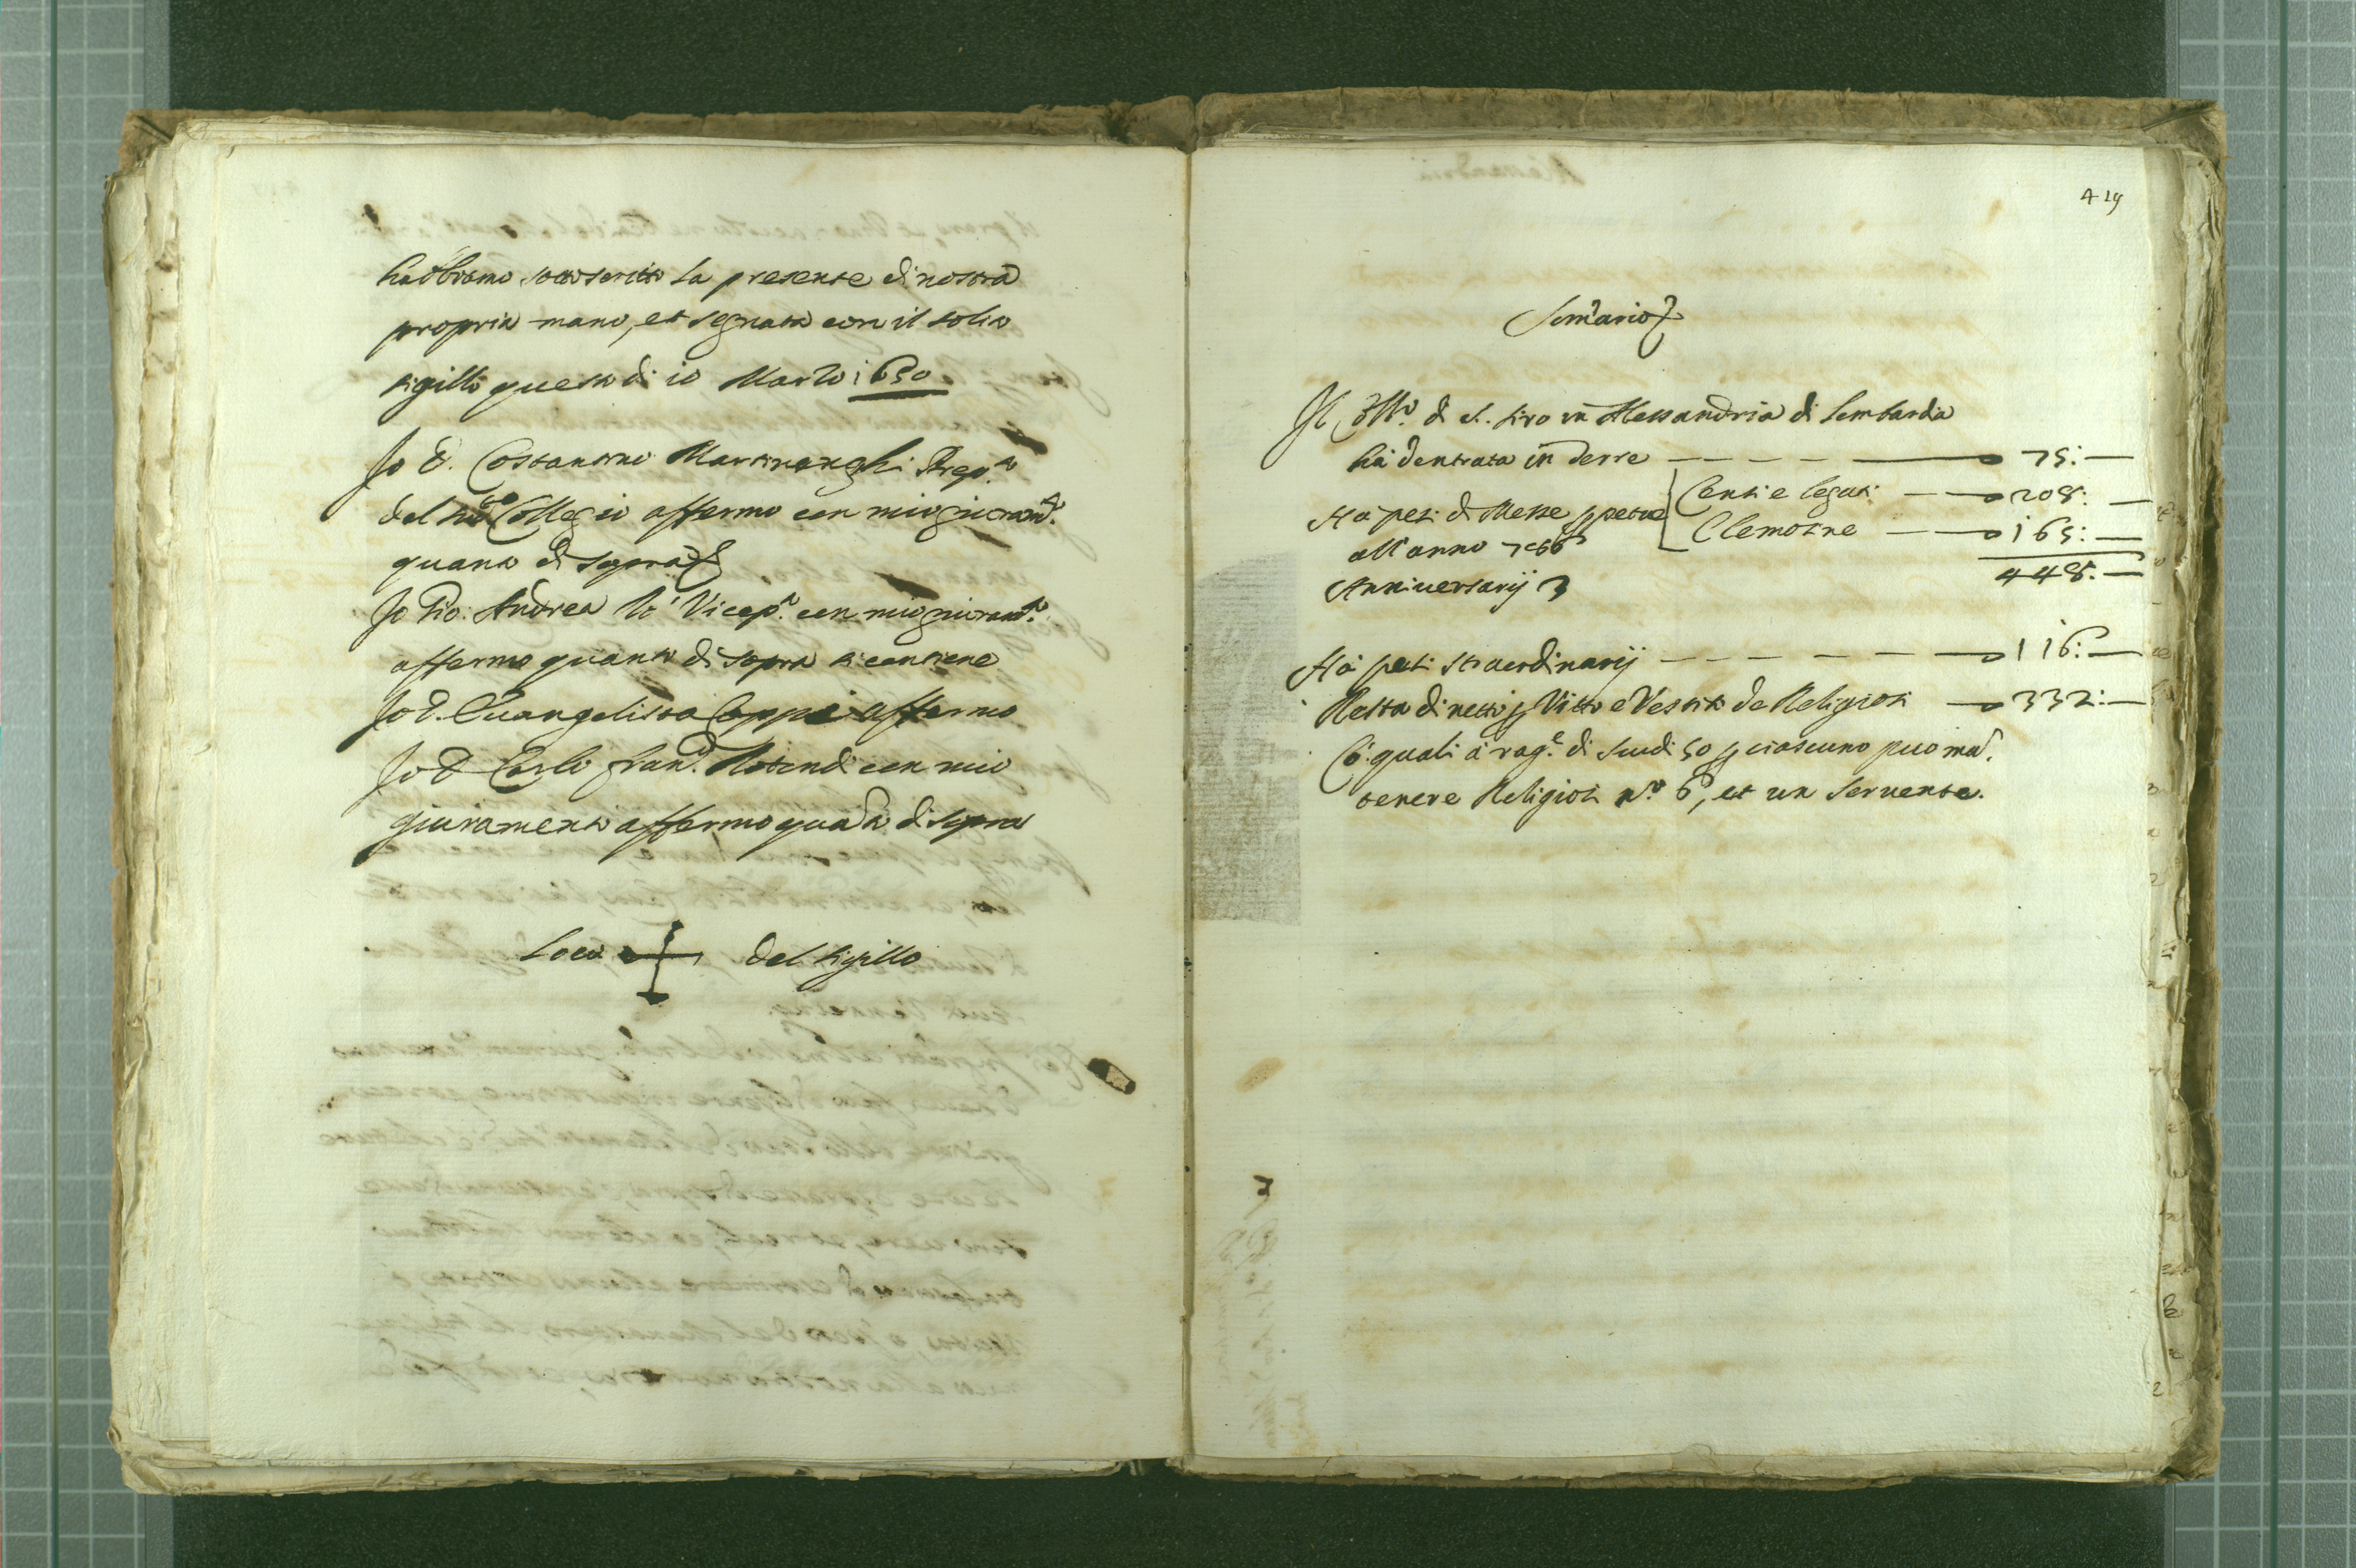 habbiamo sottoscritto la presente di nostra
propria mano, et segnata con il solito
sigillo questo di 10 Marzo 1650
Io D. Costantino Martinenghi Prep.to
del sud.o Collegio affermo con mio giuram.to
quanto di sopra
Io Gio: Andrea Vicep.to con mio giuram.to
affermo quanto di sopra si contiene
Io D. Euangelista Coppi affermo
Io D Carlo Fran.co con mio
giuramento affermo quãto di sopra
Loco + del sigillo
419
Som̃ario
Il Coll.o di S. Siro in Alessandria di Lombardia
hà d'entrata in Terre 75:
Censi e legati 208:
Hà pesi di Messe ꝑpetue
Elemosine 165:
all'anno 766
448:
Anniversarij 3
Hà pesi straordinarij 116:
Resta di netto ꝑ Vitto e Vestito de Religiosi 332:
Cõ quali à rag.e di scudi 50 ꝑ ciascuno puo man
tenere Religiosi n.o 6, et un seruente.